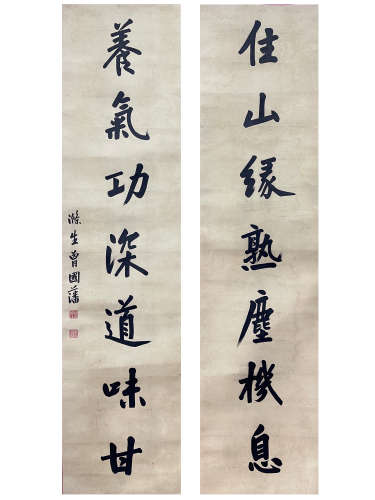 住山緣熟塵機息
養氣功深道味甘
滌生曾國藩